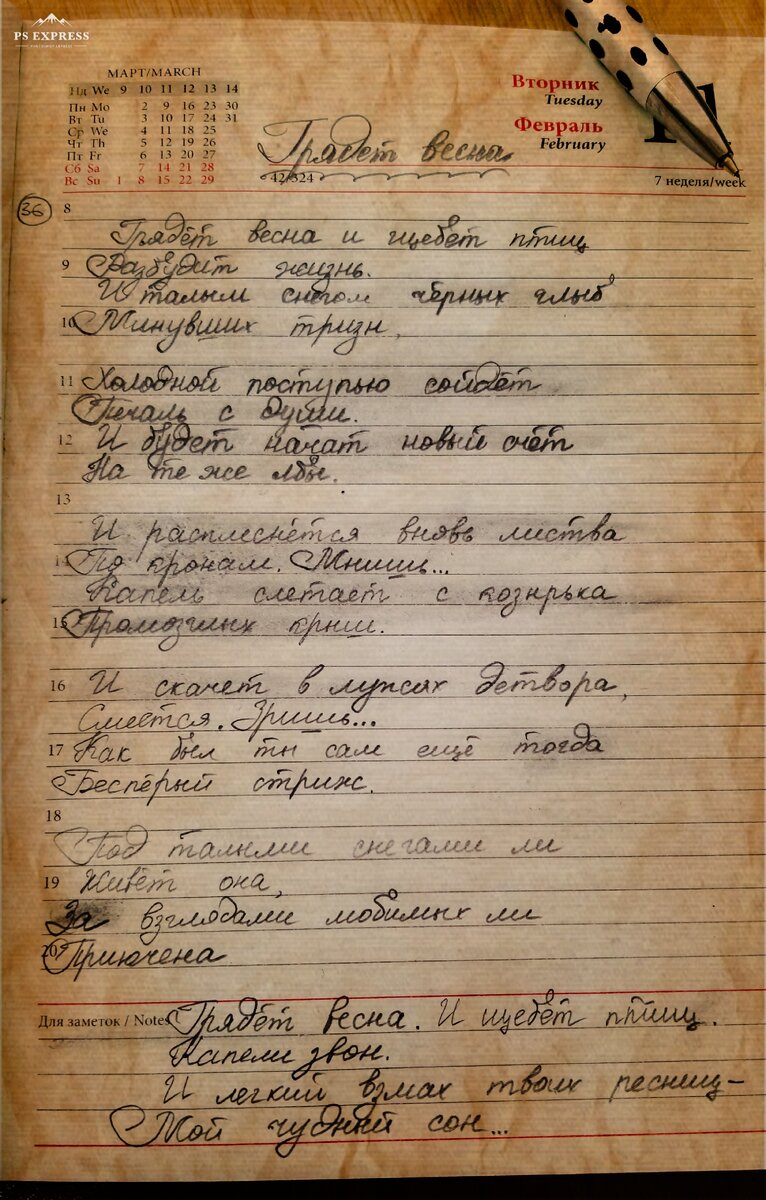 PS EXPRESS
МАРТ/MARCH
Нд We 9 10 11 12 13 14
Пн Mo 2 9 16 23 30
Вт Tu 3 10 17 24 31
Ср We 4 11 18 25
Чт Th 5 12 19 26
Пт Fr 6 13 20 27
Сб Sa 7 14 21 28
Вс Su 1 8 15 22 29
Вторник
Tuesday
Февраль
February
42/324
7 неделя/week
Грядёт весна
36
8
Грядёт весна и щебет птиц
9 Разбудит жизнь.
И талым снегом чёрных глыб
10 Минувших тризн,
11 Холодной поступью сойдёт
Печаль с души.
12 И будет начат новый счёт
На те же лбы.
13
И расплеснётся вновь листва
14 По кронам. Мнишь...
Капель слетает с козырька
15 Промозглых крыш.
16 И скачет в лужах детвора,
Смеётся. Зришь...
17 Как был ты сам ещё тогда
Бесперый стриж.
18
Под талыми снегами ли
19 Живёт она,
За взглядами любимых ли
20 Приючена
Для заметок / Notes Грядёт весна. И щебет птиц.
Капели звон.
И легкий взмах твоих ресниц-
Мой чудный сон...